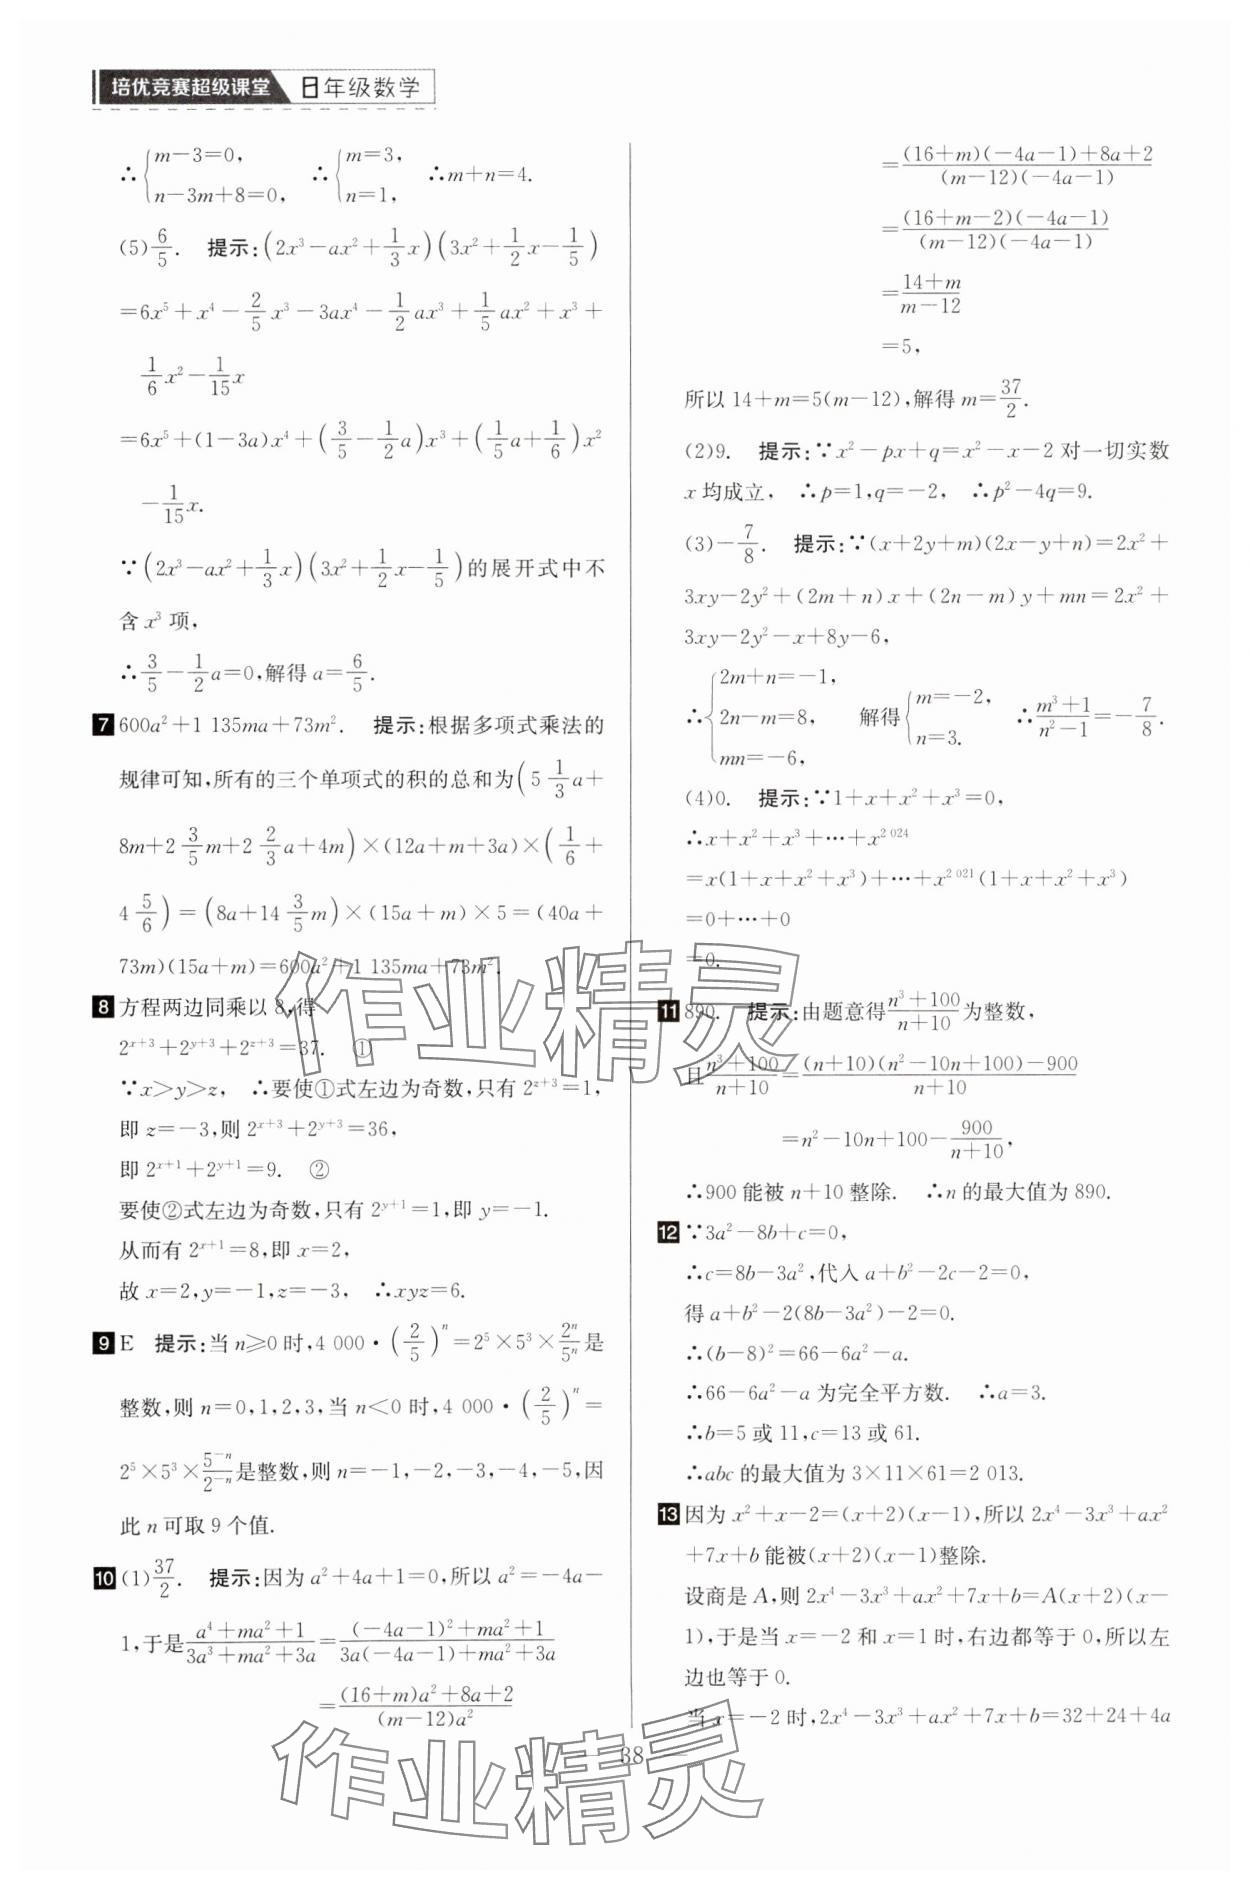 培优竞赛超级课堂 8年级数学
∴{m－3=0, n－3m+8=0, ∴{m=3, n=1, ∴m+n=4.
(5)6/5. 提示:(2x³－ax²+1/3x)(3x²+1/2x－1/5)
=6x⁵+x⁴－2/5x³－3ax⁴－1/2ax³+1/5ax²+x³+
1/6x²－1/15x
=6x⁵+(1－3a)x⁴+(3/5－1/2a)x³+(1/5a+1/6)x²
－1/15x.
∵(2x³－ax²+1/3x)(3x²+1/2x－1/5)的展开式中不
含x³项,
∴3/5－1/2a=0,解得a=6/5.
7 600a²+1 135ma+73m². 提示:根据多项式乘法的
规律可知,所有的三个单项式的积的总和为(5 1/3a+
8m+2 3/5m+2 2/3a+4m)×(12a+m+3a)×(1/6+
4 5/6)=(8a+14 3/5m)×(15a+m)×5=(40a+
73m)(15a+m)=600a²+1 135ma+73m².
8 方程两边同乘以8,得
2^(x+3)+2^(y+3)+2^(z+3)=37. ①
∵x>y>z, ∴要使①式左边为奇数,只有2^(z+3)=1,
即z=－3,则2^(x+3)+2^(y+3)=36,
即2^(x+1)+2^(y+1)=9. ②
要使②式左边为奇数,只有2^(y+1)=1,即y=－1.
从而有2^(x+1)=8,即x=2,
故x=2,y=－1,z=－3, ∴xyz=6.
9 E 提示:当n≥0时,4 000·(2/5)ⁿ=2⁵×5³×2ⁿ/5ⁿ是
整数,则n=0,1,2,3,当n<0时,4 000·(2/5)ⁿ=
2⁵×5³×5⁻ⁿ/2⁻ⁿ是整数,则n=－1,－2,－3,－4,－5,因
此n可取9个值.
10 (1)37/2. 提示:因为a²+4a+1=0,所以a²=－4a－
1,于是(a⁴+ma²+1)/(3a³+ma²+3a)=((－4a－1)²+ma²+1)/(3a(－4a－1)+ma²+3a)
=((16+m)a²+8a+2)/((m－12)a²)
=((16+m)(－4a－1)+8a+2)/((m－12)(－4a－1))
=((16+m－2)(－4a－1))/((m－12)(－4a－1))
=(14+m)/(m－12)
=5,
所以14+m=5(m－12),解得m=37/2.
(2)9. 提示:∵x²－px+q=x²－x－2对一切实数
x均成立, ∴p=1,q=－2, ∴p²－4q=9.
(3)－7/8. 提示:∵(x+2y+m)(2x－y+n)=2x²+
3xy－2y²+(2m+n)x+(2n－m)y+mn=2x²+
3xy－2y²－x+8y－6,
∴{2m+n=－1, 2n－m=8, mn=－6, 解得{m=－2, n=3. ∴(m³+1)/(n²－1)=－7/8.
(4)0. 提示:∵1+x+x²+x³=0,
∴x+x²+x³+…+x^(2 024)
=x(1+x+x²+x³)+…+x^(2 021)(1+x+x²+x³)
=0+…+0
=0.
11 890. 提示:由题意得(n³+100)/(n+10)为整数,
且(n³+100)/(n+10)=((n+10)(n²－10n+100)－900)/(n+10)
=n²－10n+100－900/(n+10),
∴900能被n+10整除. ∴n的最大值为890.
12 ∵3a²－8b+c=0,
∴c=8b－3a²,代入a+b²－2c－2=0,
得a+b²－2(8b－3a²)－2=0.
∴(b－8)²=66－6a²－a.
∴66－6a²－a为完全平方数. ∴a=3.
∴b=5或11,c=13或61.
∴abc的最大值为3×11×61=2 013.
13 因为x²+x－2=(x+2)(x－1),所以2x⁴－3x³+ax²
+7x+b能被(x+2)(x－1)整除.
设商是A,则2x⁴－3x³+ax²+7x+b=A(x+2)(x－
1),于是当x=－2和x=1时,右边都等于0,所以左
边也等于0.
当x=－2时,2x⁴－3x³+ax²+7x+b=32+24+4a
38
作业精灵
作业精灵